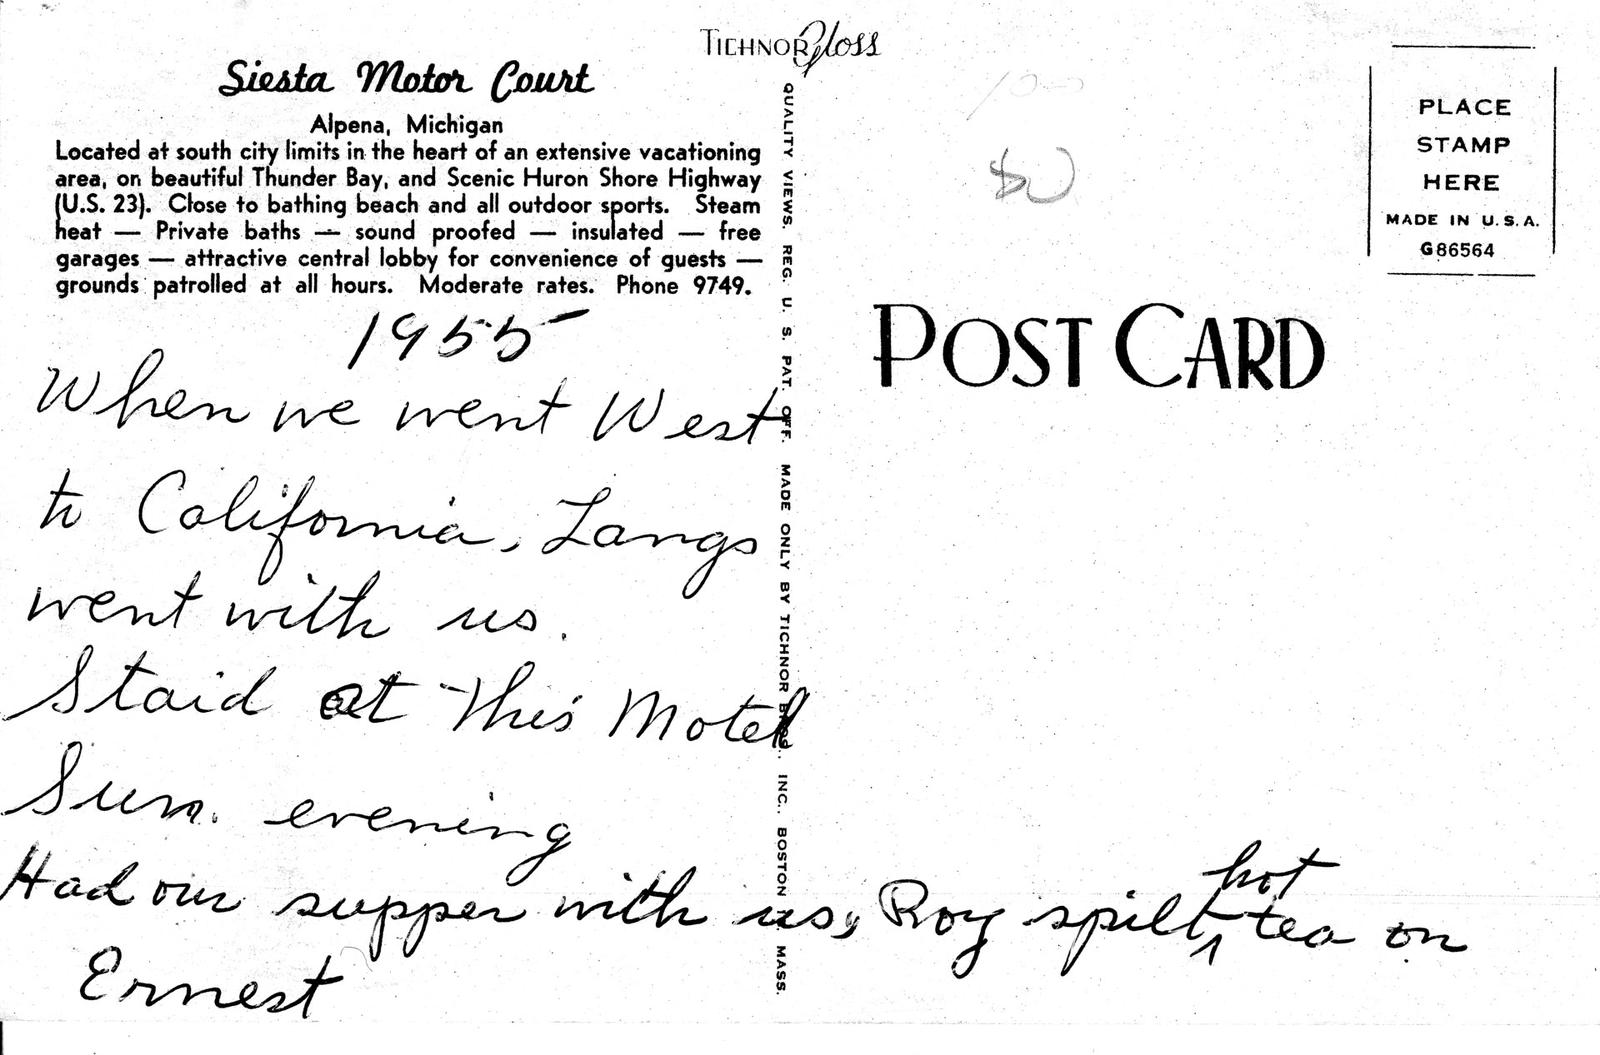 TICHNOR Gloss
Siesta Motor Court
Alpena, Michigan
Located at south city limits in the heart of an extensive vacationing
area, on beautiful Thunder Bay, and Scenic Huron Shore Highway
(U.S. 23). Close to bathing beach and all outdoor sports. Steam
heat — Private baths — sound proofed — insulated — free
garages — attractive central lobby for convenience of guests —
grounds patrolled at all hours. Moderate rates. Phone 9749.
1955
When we went West
to California, Langs
went with us.
Staid at this Motel
Sun. evening
Had our supper with us, Roy spilt hot tea on
Ernest
QUALITY VIEWS. REG. U. S. PAT. OFF. MADE ONLY BY TICHNOR BROS., INC., BOSTON MASS.
POST CARD
PLACE
STAMP
HERE
MADE IN U.S.A.
G86564